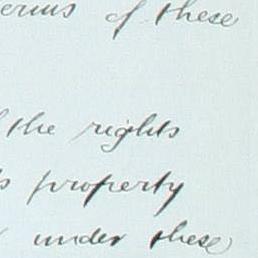 terms of these
the rights
property
under these